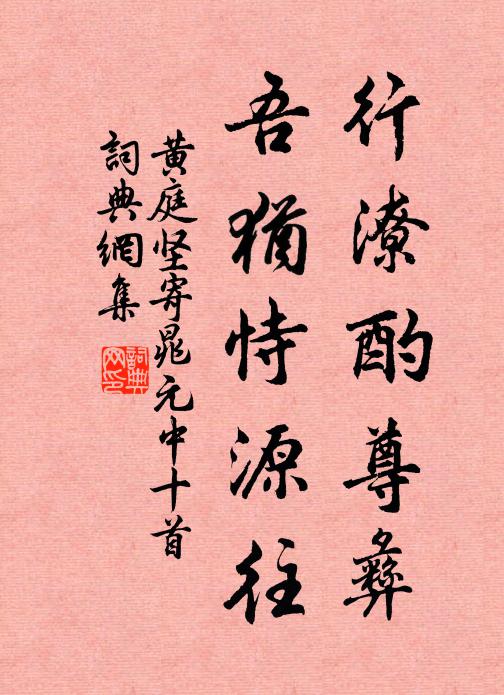 行潦酌尊彝
吾猶恃源往
黄庭坚寄晁元中十首
詞典網集
詞典網印